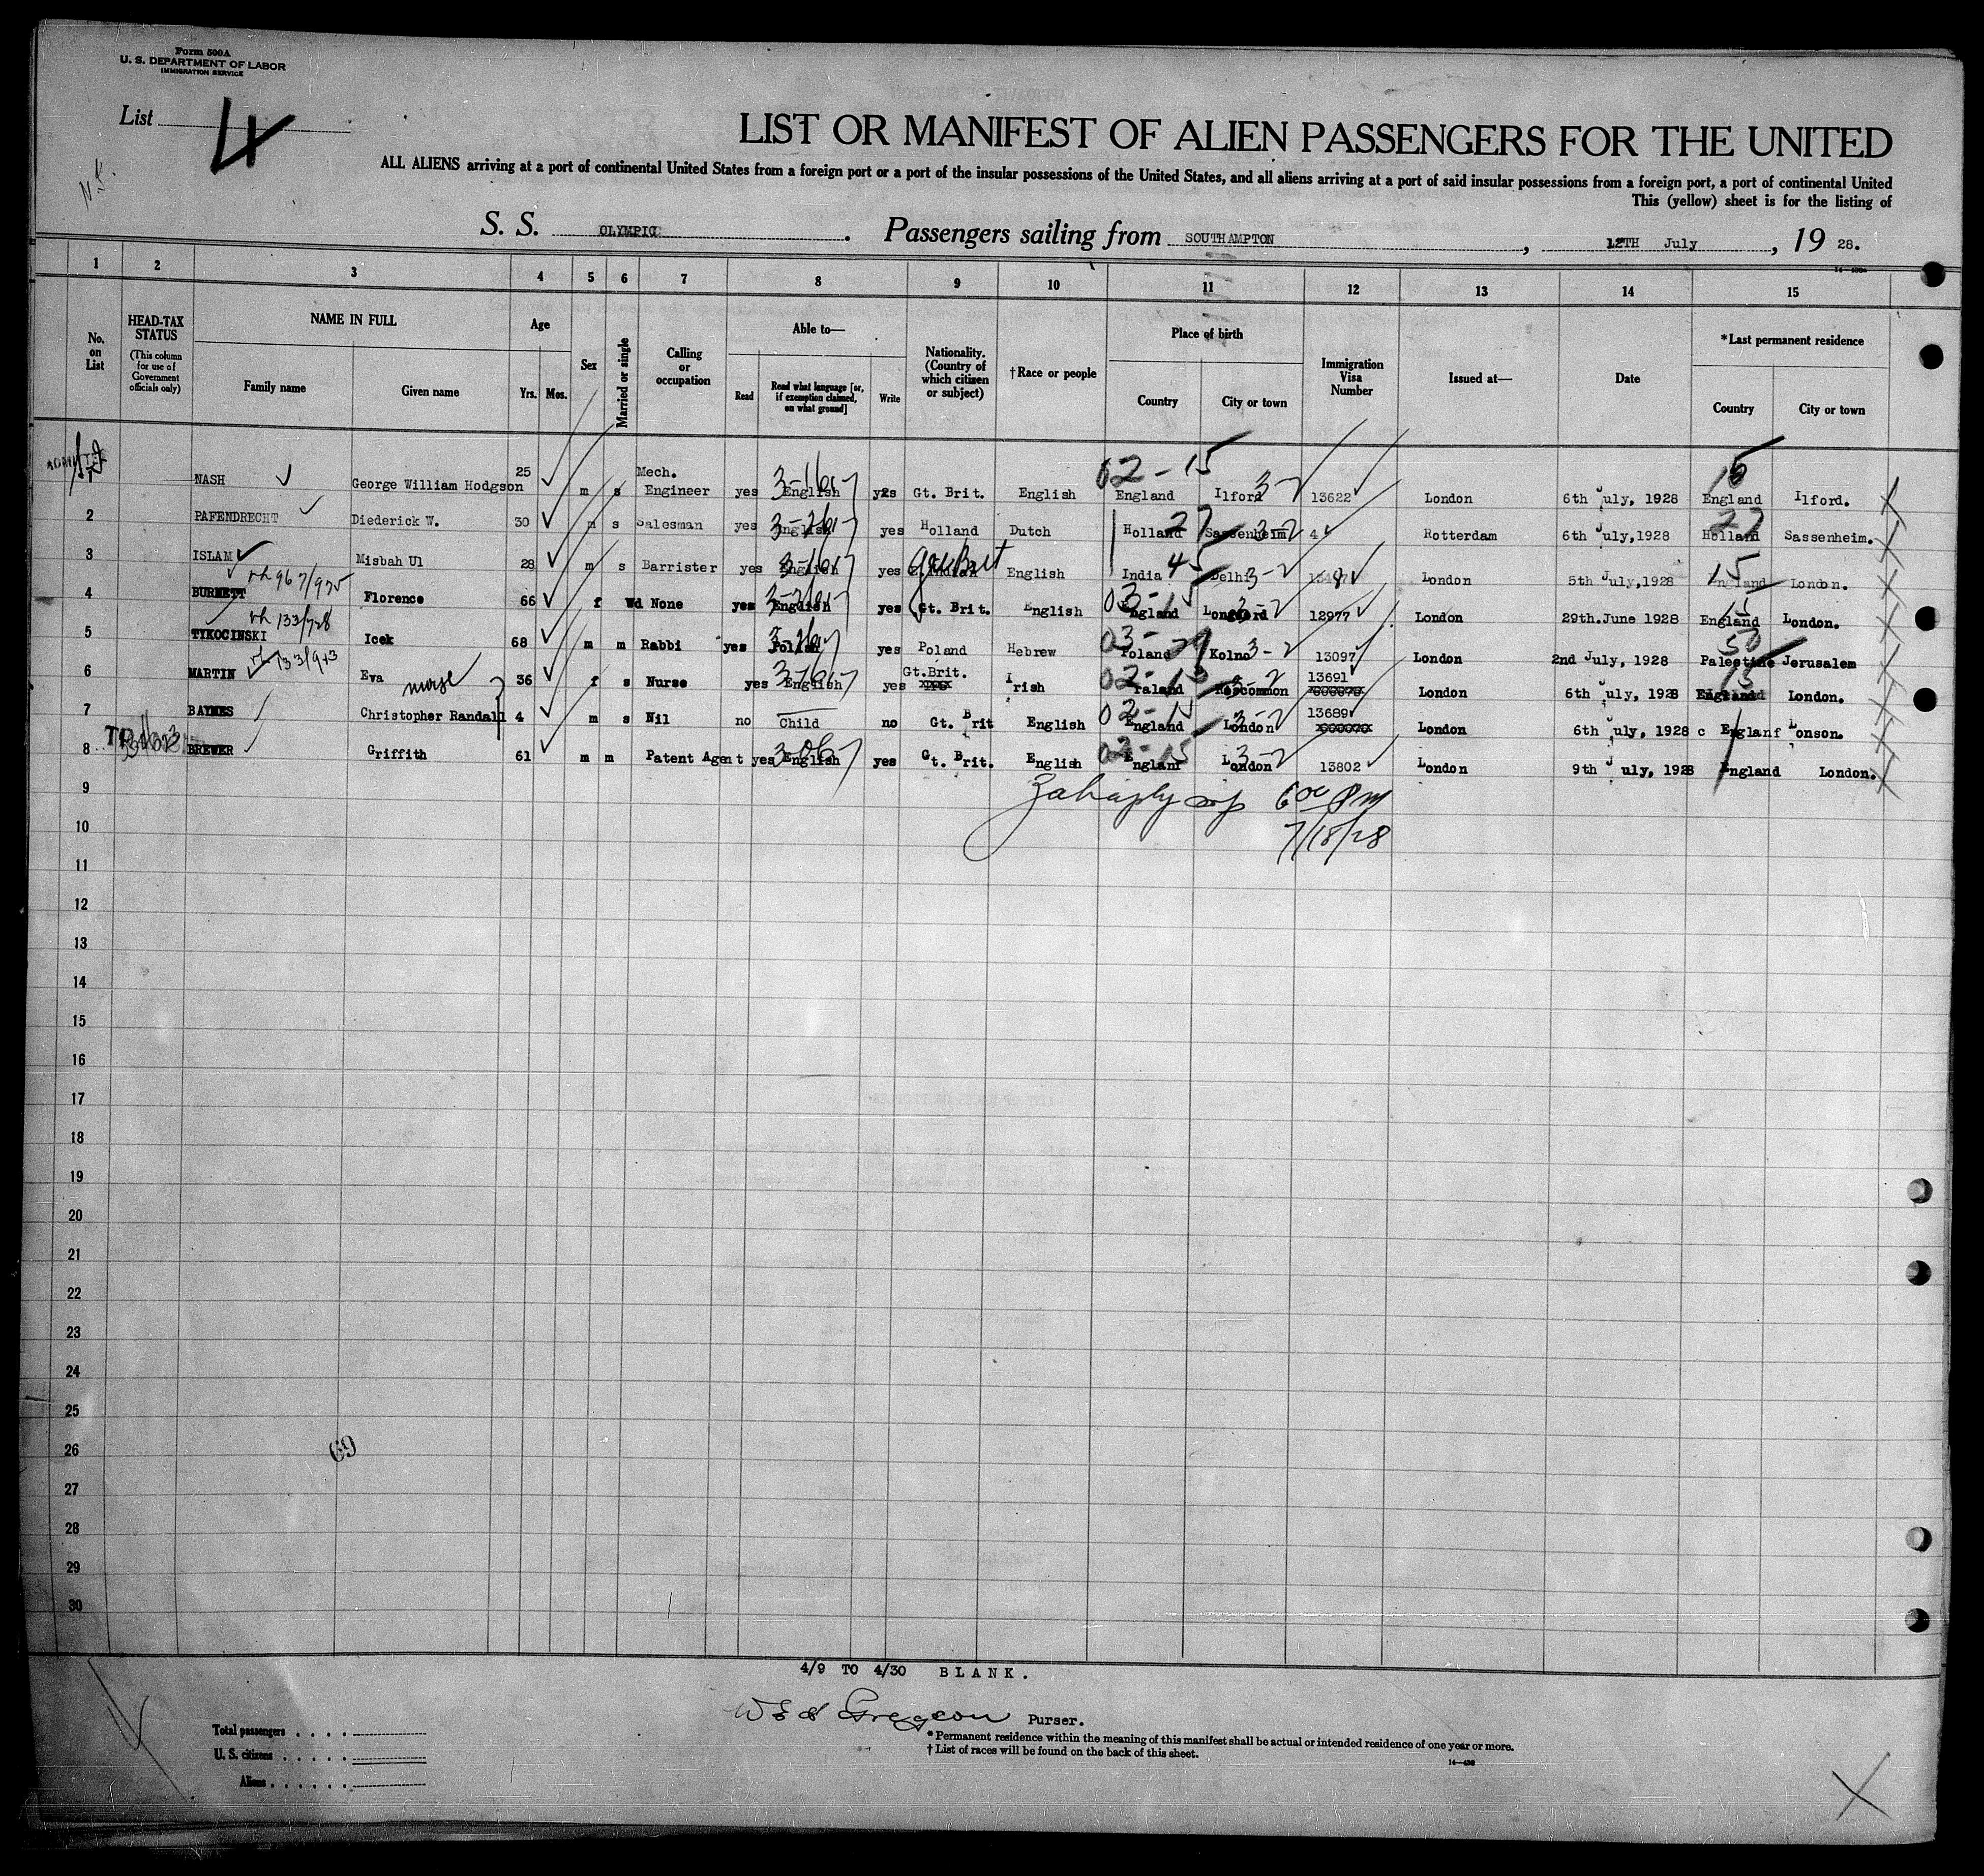 Form 500A
U. S. DEPARTMENT OF LABOR
IMMIGRATION SERVICE
List 4
LIST OR MANIFEST OF ALIEN PASSENGERS FOR THE UNITED
ALL ALIENS arriving at a port of continental United States from a foreign port or a port of the insular possessions of the United States, and all aliens arriving at a port of said insular possessions from a foreign port, a port of continental United
This (yellow) sheet is for the listing of
S. S. OLYMPIC. Passengers sailing from SOUTHAMPTON, 12TH July, 19 28.
1 2 3 4 5 6 7 8 9 10 11 12 13 14 15
No. on List
HEAD-TAX STATUS (This column for use of Government officials only)
NAME IN FULL
Family name Given name
Age
Yrs. Mos.
Sex
Married or single
Calling or occupation
Able to—
Read
Read what language [or, if exemption claimed, on what ground]
Write
Nationality. (Country of which citizen or subject)
†Race or people
Place of birth
Country City or town
Immigration Visa Number
Issued at—
Date
*Last permanent residence
Country City or town
NASH George William Hodgson 25 m s Mech. Engineer yes English yes Gt. Brit. English England Ilford 13622 London 6th July, 1928 England Ilford.
2 PAFENDRECHT Diederick W. 30 m s Salesman yes English yes Holland Dutch Holland Sassenheim 4 Rotterdam 6th July,1928 Holland Sassenheim.
3 ISLAM Misbah Ul 28 m s Barrister yes English yes English India Delhi London 5th July,1928 England London.
4 BURNETT Florence 66 f Wd None yes English yes Gt. Brit. English England Longford 12977 London 29th.June 1928 England London.
5 TYKOCINSKI Icek 68 m m Rabbi yes Polish yes Poland Hebrew Poland Kolno 13097 London 2nd July, 1928 Palestine Jerusalem
6 MARTIN Eva nurse 36 f s Nurse yes English yes Gt.Brit. Irish Iraland Roscommon 13691 London 6th July, 1928 England London.
7 BAYNES Christopher Randall 4 m s Nil no Child no Gt. Brit English England London 13689 London 6th July, 1928 c Englanf Lonson.
8 BREWER Griffith 61 m m Patent Agent yes English yes Gt. Brit. English Englanf London 13802 London 9th July, 1928 England London.
9
6 00 PM
10
7/18/28
11
12
13
14
15
16
17
18
19
20
21
22
23
24
25
26
69
27
28
29
30
4/9 TO 4/30 BLANK.
Purser.
Total passengers
U. S. citizens
Aliens
* Permanent residence within the meaning of this manifest shall be actual or intended residence of one year or more.
† List of races will be found on the back of this sheet.